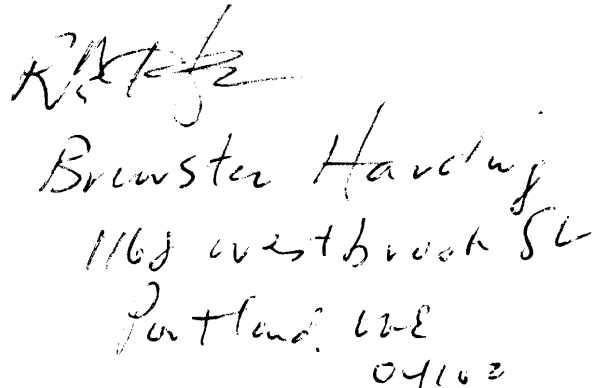 Brewster Harding
1168 Westbrook St
Portland, ME
04102